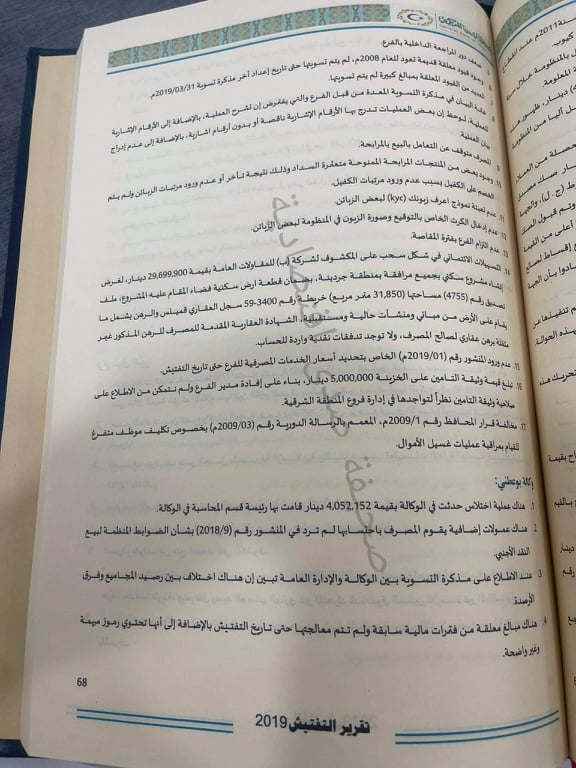 ضعف دور المراجعة الداخلية بالفرع.
وجود قيود معلقة قديمة تعود للعام 2008م، لم يتم تسويتها حتى تاريخ إعداد آخر مذكرة تسوية 2019/03/31م.
العديد من القيود المعلقة بمبالغ كبيرة لم يتم تسويتها.
خانة البيان في مذكرة التسوية المعدة من قبل الفرع والتي يفترض إن تشرح العملية، بالإضافة إلى الأرقام الإشارية
للعملية، لوحظ إن بعض العمليات تدرج بها الأرقام الإشارية ناقصة أو بدون أرقام اشارية، بالإضافة إلى عدم إدراج
بيان العملية.
المصرف متوقف عن التعامل بالبيع بالمرابحة.
10. وجود بعض من المنتجات المرابحة الممنوحة متعثرة السداد وذلك نتيجة تأخر أو عدم ورود مرتبات الزبائن ولم يتم
الخصم على الكفيل بسبب عدم ورود مرتبات الكفيل.
11. عدم تعبئة نموذج اعرف زبونك (kyc) لبعض الزبائن.
12. عدم إدخال الكرت الخاص بالتوقيع وصورة الزبون في المنظومة لبعض الزبائن.
13. عدم التزام الفرع بفترة المقاصة.
14. التسهيلات الائتماني في شكل سحب على المكشوف لشركة (ب) للمقاولات العامة بقيمة 29,699,900 دينار، لغرض
إنشاء مشروع سكني بجميع مرافقة بمنطقة جردينة، بضمان قطعة ارض سكنية فضاء المقام عليه المشروع، ملف
تصديق رقم (4755) مساحتها (31,850 متر مربع) خريطة رقم 3400-59 سجل العقاري قمينس والرهن يشمل ما
يقام على الأرض من مباني ومنشأت حالية ومستقبلية، الشهادة العقارية المقدمة للمصرف للرهن المذكور غير
مثقلة برهن عقاري لصالح المصرف، ولا توجد تدفقات نقدية واردة للحساب.
15. عدم ورود المنشور رقم (2019/01م) الخاص بتحديد أسعار الخدمات المصرفية للفرع حتى تاريخ التفتيش.
16. تبلغ قيمة وثيقة التامين على الخزينة 5,000,000 دينار، بناء على إفادة مدير الفرع ولم نتمكن من الاطلاع على
صلاحية وثيقة التامين نظراً لتواجدها في إدارة فروع المنطقة الشرقية.
17. مخالفة قرار المحافظ رقم 2009/1م، المعمم بالرسالة الدورية رقم (2009/03م) بخصوص تكليف موظف متفرغ
للقيام بمراقبة عمليات غسيل الأموال.
وكالة بوعطني:
1. هناك عملية اختلاس حدثت في الوكالة بقيمة 4,052,152 دينار قامت بها رئيسة قسم المحاسبة في الوكالة.
2. هناك عمولات إضافية يقوم المصرف باحتسابها لم ترد في المنشور رقم (2018/9) بشأن الضوابط المنظمة لبيع
النقد الأجنبي.
3. عند الاطلاع على مذكرة التسوية بين الوكالة والإدارة العامة تبين إن هناك اختلاف بين رصيد المجاميع وفرق
الأرصدة.
4. هناك مبالغ معلقة من فترات مالية سابقة ولم تتم معالجتها حتى تاريخ التفتيش بالإضافة إلى أنها تحتوي رموز مبهمة
وغير واضحة.
صحيفة صدى اقتصادية
68
تقرير التفتيش 2019